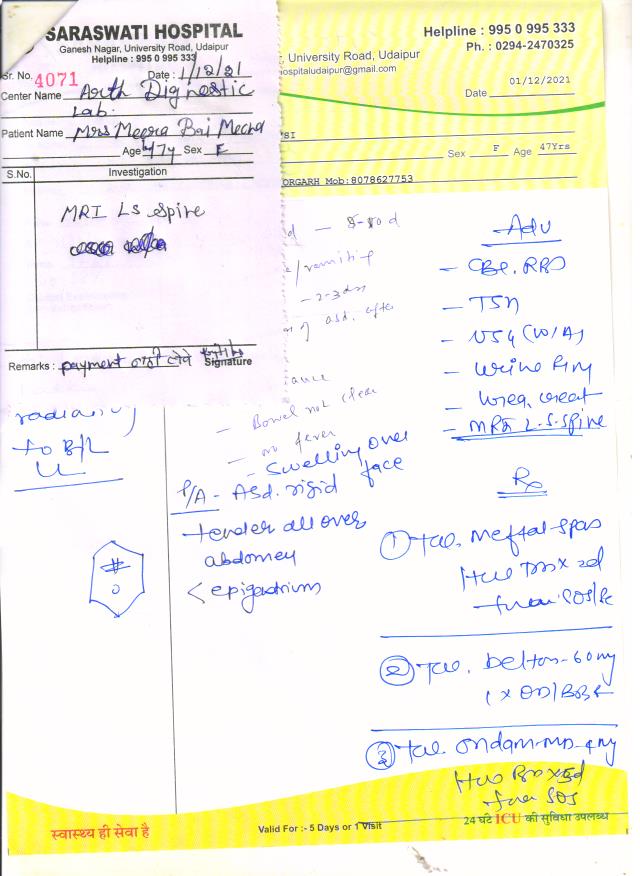 SARASWATI HOSPITAL
Ganesh Nagar, University Road, Udaipur
Helpline : 995 0 995 333
Sr. No. 4071
Date : 1/12/21
Center Name Arth Dignostic
Lab.
Patient Name Mrs Meera Bai
Age 47y Sex F
S.No. Investigation
MRI LS Spine
Remarks : payment नही लेवे
Signature
Helpline : 995 0 995 333
Ph. : 0294-2470325
, University Road, Udaipur
ospitaludaipur@gmail.com
01/12/2021
Date
SI
Sex F Age 47Yrs
ORGARH Mob:8078627753
/vomiting
- 2-3
asd. after
- Bowel not clear
- no fever
- Swelling over
face
P/A - Asd. rigid
tender all over
abdomen
< epigastrium
radiating
to B/L
Adv
- CBC. RBS
- TSH
- USG (W/A)
- Urine
- Urea, creat
- MRI L.S. Spine
Rx
① Tab. Meftal-spas
SOS
② Tab. -60mg
1 x OD/BBF
③ Tab. ondam-MD-4mg
SOS
स्वास्थ्य ही सेवा है
Valid For :- 5 Days or 1 Visit
24 घंटे ICU की सुविधा उपलब्ध